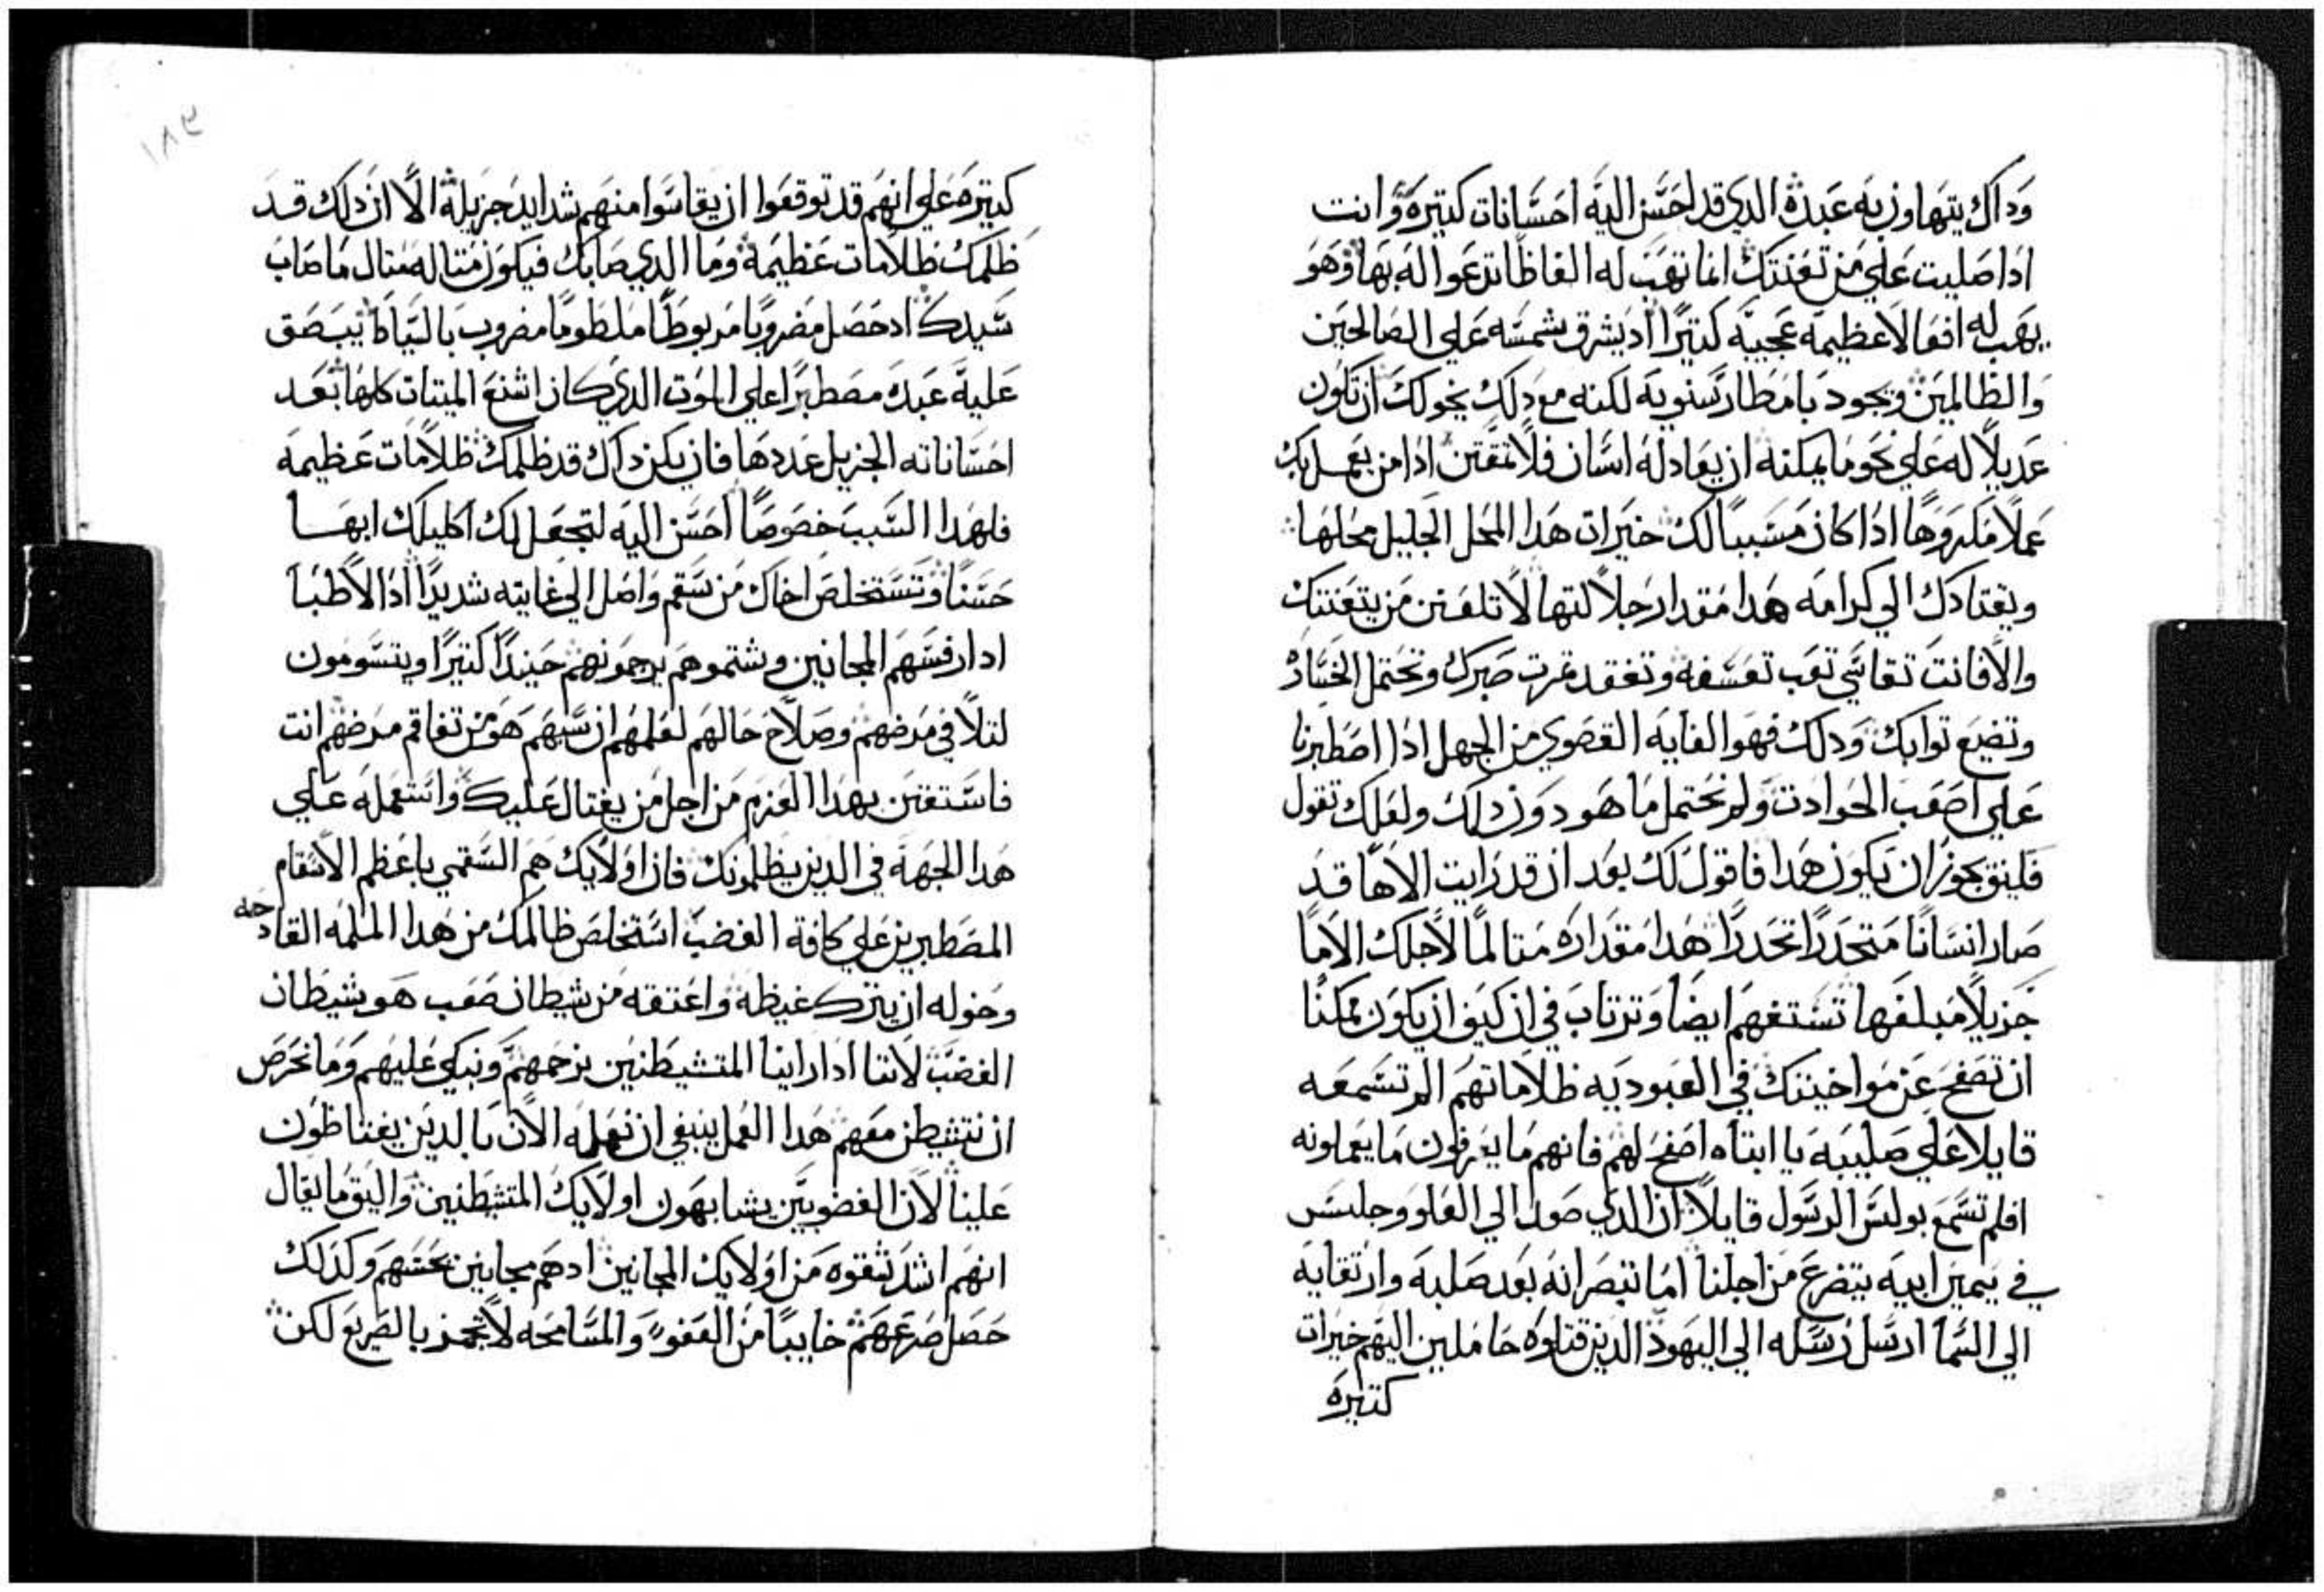 وداك يتهاون به عبده الدي قد احسن اليه احسانات كتيرة وانت
ادا صليت علي من تعنتك انما تهب له الفاظا تدعوا له بها وهو
يهب له افعالا عظيمه عجيبه كتيرا اد يشرق شمسه علي الصالحين
والظالمين ويجود بامطار سنويه لكنه مع دلك يخولك ان تكون
عديلا له علي نحو ما يمكنه ان يعادله انسان فلا تمقتن ادا من يعمل بك
عملا مكروها ادا كان مسببا لك خيرات هدا المحل الجليل محلها
ويقتادك الي كرامه هدا مقدار جلالتها لا تلعنن من يتعنتك
والا فانت تقاسي تعب تعسفه وتفقد تمرت صبرك وتحتمل الخساره
وتضيع توابك ودلك فهو الغايه القصوي من الجهل ادا اصطبرنا
علي اصعب الحوادت ولم نحتمل ما هو دون دلك ولعلك تقول
فليق يجوز ان يكون هدا فاقول لك بعد ان قد رايت الاها قد
صار انسانا متحدرا تحدرا هدا مقداره متالما لاجلك الاما
جزيلا مبلغها تستفهم ايضا وترتاب في ان كيف ان يكون ممكنا
ان تصفح عن مواخينك في العبوديه ظلاماتهم الم تسمعه
قايلا علي صليبه يا ابتاه اصفح لهم فانهم ما يعرفون ما يعملونه
افلم تسمع بولس الرسول قايلا ان الدي صعد الي العلو وجلس
في يمين ابيه يتضرع من اجلنا اما تبصر انه بعد صلبه وارتقايه
الي السما ارسل رسله الي اليهود الدين قتلوه حاملين اليهم خيرات
كتيره
١٨٣
كتيره علي انهم قد توقعوا ان يقاسوا منهم شدايد جزيله الا ان داك قد
ظلمك ظلامات عظيمه وما الدي صابك فيكون متاله متال ما صاب
سيدك اد حصل مضروبا مربوطا ملطوما مضروب بالسياط يبصق
عليه عبده مصطبرا علي الموت الدي كان اشنع الميتات كلها بعد
احساناته الجزيل عددها فان يكن داك قد ظلمك ظلامات عظيمه
فلهدا السبب خصوصا احسن اليه لتجعل لك اكليلك ابها
حسنا وتستخلص اخاك من سقم واصل الي غايته شديدا اد الاطبا
ادا رفسهم المجانين وشتموهم يرحمونهم حينيدا كتيرا ويتسومون
لتلافي مرضهم وصلاح حالهم لعلمهم ان سبهم هو من تفاقم مرضهم انت
فاستعن بهدا العزم من اجل من يغتال عليك واستعمله علي
هدا الجهه في الدين يظلمونك فان اولايك هم السقمي باعظم الاسقام
المصطبرين علي كافة الغضب استخلص ظالمك من هدا الملمه القادحه
وخوله ان يترك غيظه واعتقه من شيطان صعب هو شيطان
الغضب لاننا ادا راينا المتشيطنين نرحمهم ونبكي عليهم وما نحرص
ان نتشيطن معهم هدا العمل ينبغي ان نعمله الان بالدين يغتاظون
علينا لان الغضوبين يشابهون اولايك المتشيطنين واليق ما يقال
انهم اشد شقوه من اولايك المجانين اد هم مجانين بحسهم وكدلك
حصل صرعهم خايبا من العفو والمسامحه لا تجمز بالطريع لكن